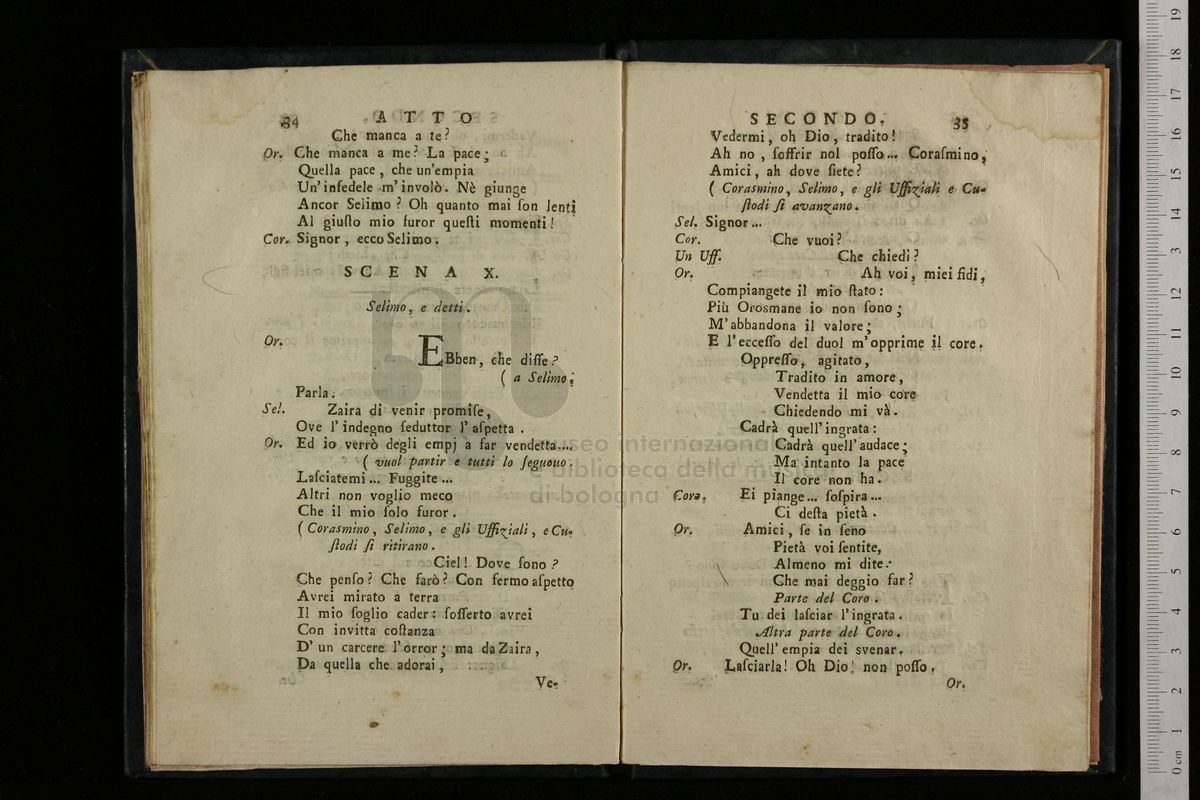 34 ATTO
Che manca a te?
Or. Che manca a me? La pace;
Quella pace, che un'empia
Un'infedele m'involò. Nè giunge
Ancor Selimo? Oh quanto mai ſon lenti
Al giuſto mio furor queſti momenti!
Cor. Signor, ecco Selimo.
SCENA X.
Selimo, e detti.
Or. EBben, che diſſe?
( a Selimo.
Parla.
Sel. Zaira di venir promiſe,
Ove l'indegno ſeduttor l'aſpetta.
Or. Ed io verrò degli empj a far vendetta....
( vuol partir e tutti lo ſeguono.
Laſciatemi... Fuggite...
Altri non voglio meco
Che il mio ſolo furor.
( Corasmino, Selimo, e gli Uffiziali, e Cu-
ſtodi ſi ritirano.
Ciel! Dove ſono?
Che penſo? Che farò? Con fermo aſpetto
Avrei mirato a terra
Il mio ſoglio cader: ſofferto avrei
Con invitta coſtanza
D'un carcere l'orror; ma da Zaira,
Da quella che adorai,
Ve-
SECONDO. 35
Vedermi, oh Dio, tradito!
Ah no, ſoffrir nol poſſo... Coraſmino,
Amici, ah dove ſiete?
( Corasmino, Selimo, e gli Uffiziali e Cu-
ſtodi ſi avanzano.
Sel. Signor...
Cor. Che vuoi?
Un Uff. Che chiedi?
Or. Ah voi, miei fidi,
Compiangete il mio ſtato:
Più Orosmane io non ſono;
M'abbandona il valore;
E l'ecceſſo del duol m'opprime il core.
Oppreſſo, agitato,
Tradito in amore,
Vendetta il mio core
Chiedendo mi và.
Cadrà quell'ingrata:
Cadrà quell'audace;
Ma intanto la pace
Il core non ha.
Coro. Ei piange... ſoſpira...
Ci deſta pietà.
Or. Amici, ſe in ſeno
Pietà voi ſentite,
Almeno mi dite:
Che mai deggio far?
Parte del Coro.
Tu dei laſciar l'ingrata.
Altra parte del Coro.
Quell'empia dei svenar.
Or. Laſciarla! Oh Dio! non poſſo.
Or.
museo internazionale
e biblioteca della musica
di bologna
0 cm 1 2 3 4 5 6 7 8 9 10 11 12 13 14 15 16 17 18 19